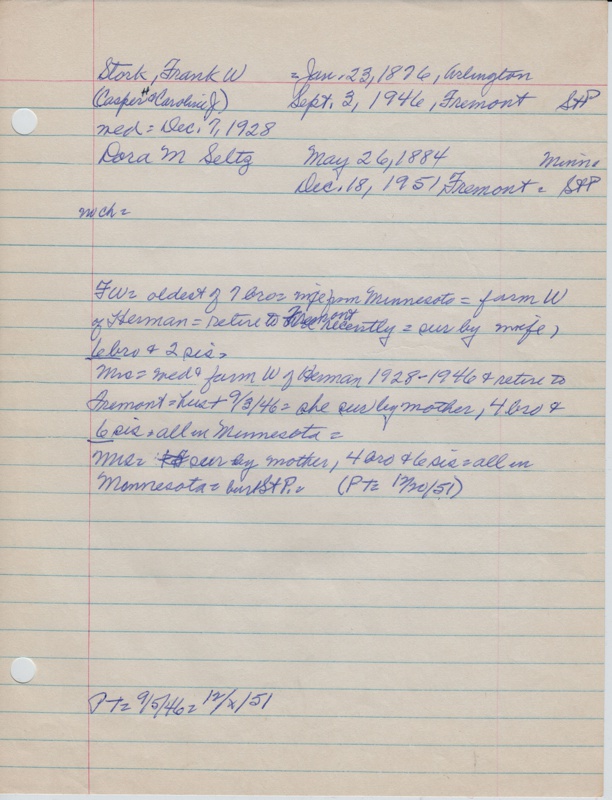 Stork, Frank W = Jan. 23, 1876, Arlington
(Casper H & Caroline J) Sept. 3, 1946, Fremont St P
med = Dec. 7, 1928
Dora M Seltz May 26, 1884 Minn.
Dec. 18, 1951 Fremont = St P
no ch =
FW = oldest of 7 bro = wife from Minnesota = farm W
of Herman = retire to Fremont recently = sur by wife,
6 bro & 2 sis.
Mrs = med & farm W of Herman 1928-1946 & retire to
Fremont = hus + 9/3/46 = she sur by mother, 4 bro &
6 sis = all in Minnesota =
Mrs = sur by mother, 4 bro & 6 sis = all in
Minnesota = bur St P. = (PT = 12/20/51)
PT = 9/5/46 = 12/x/51